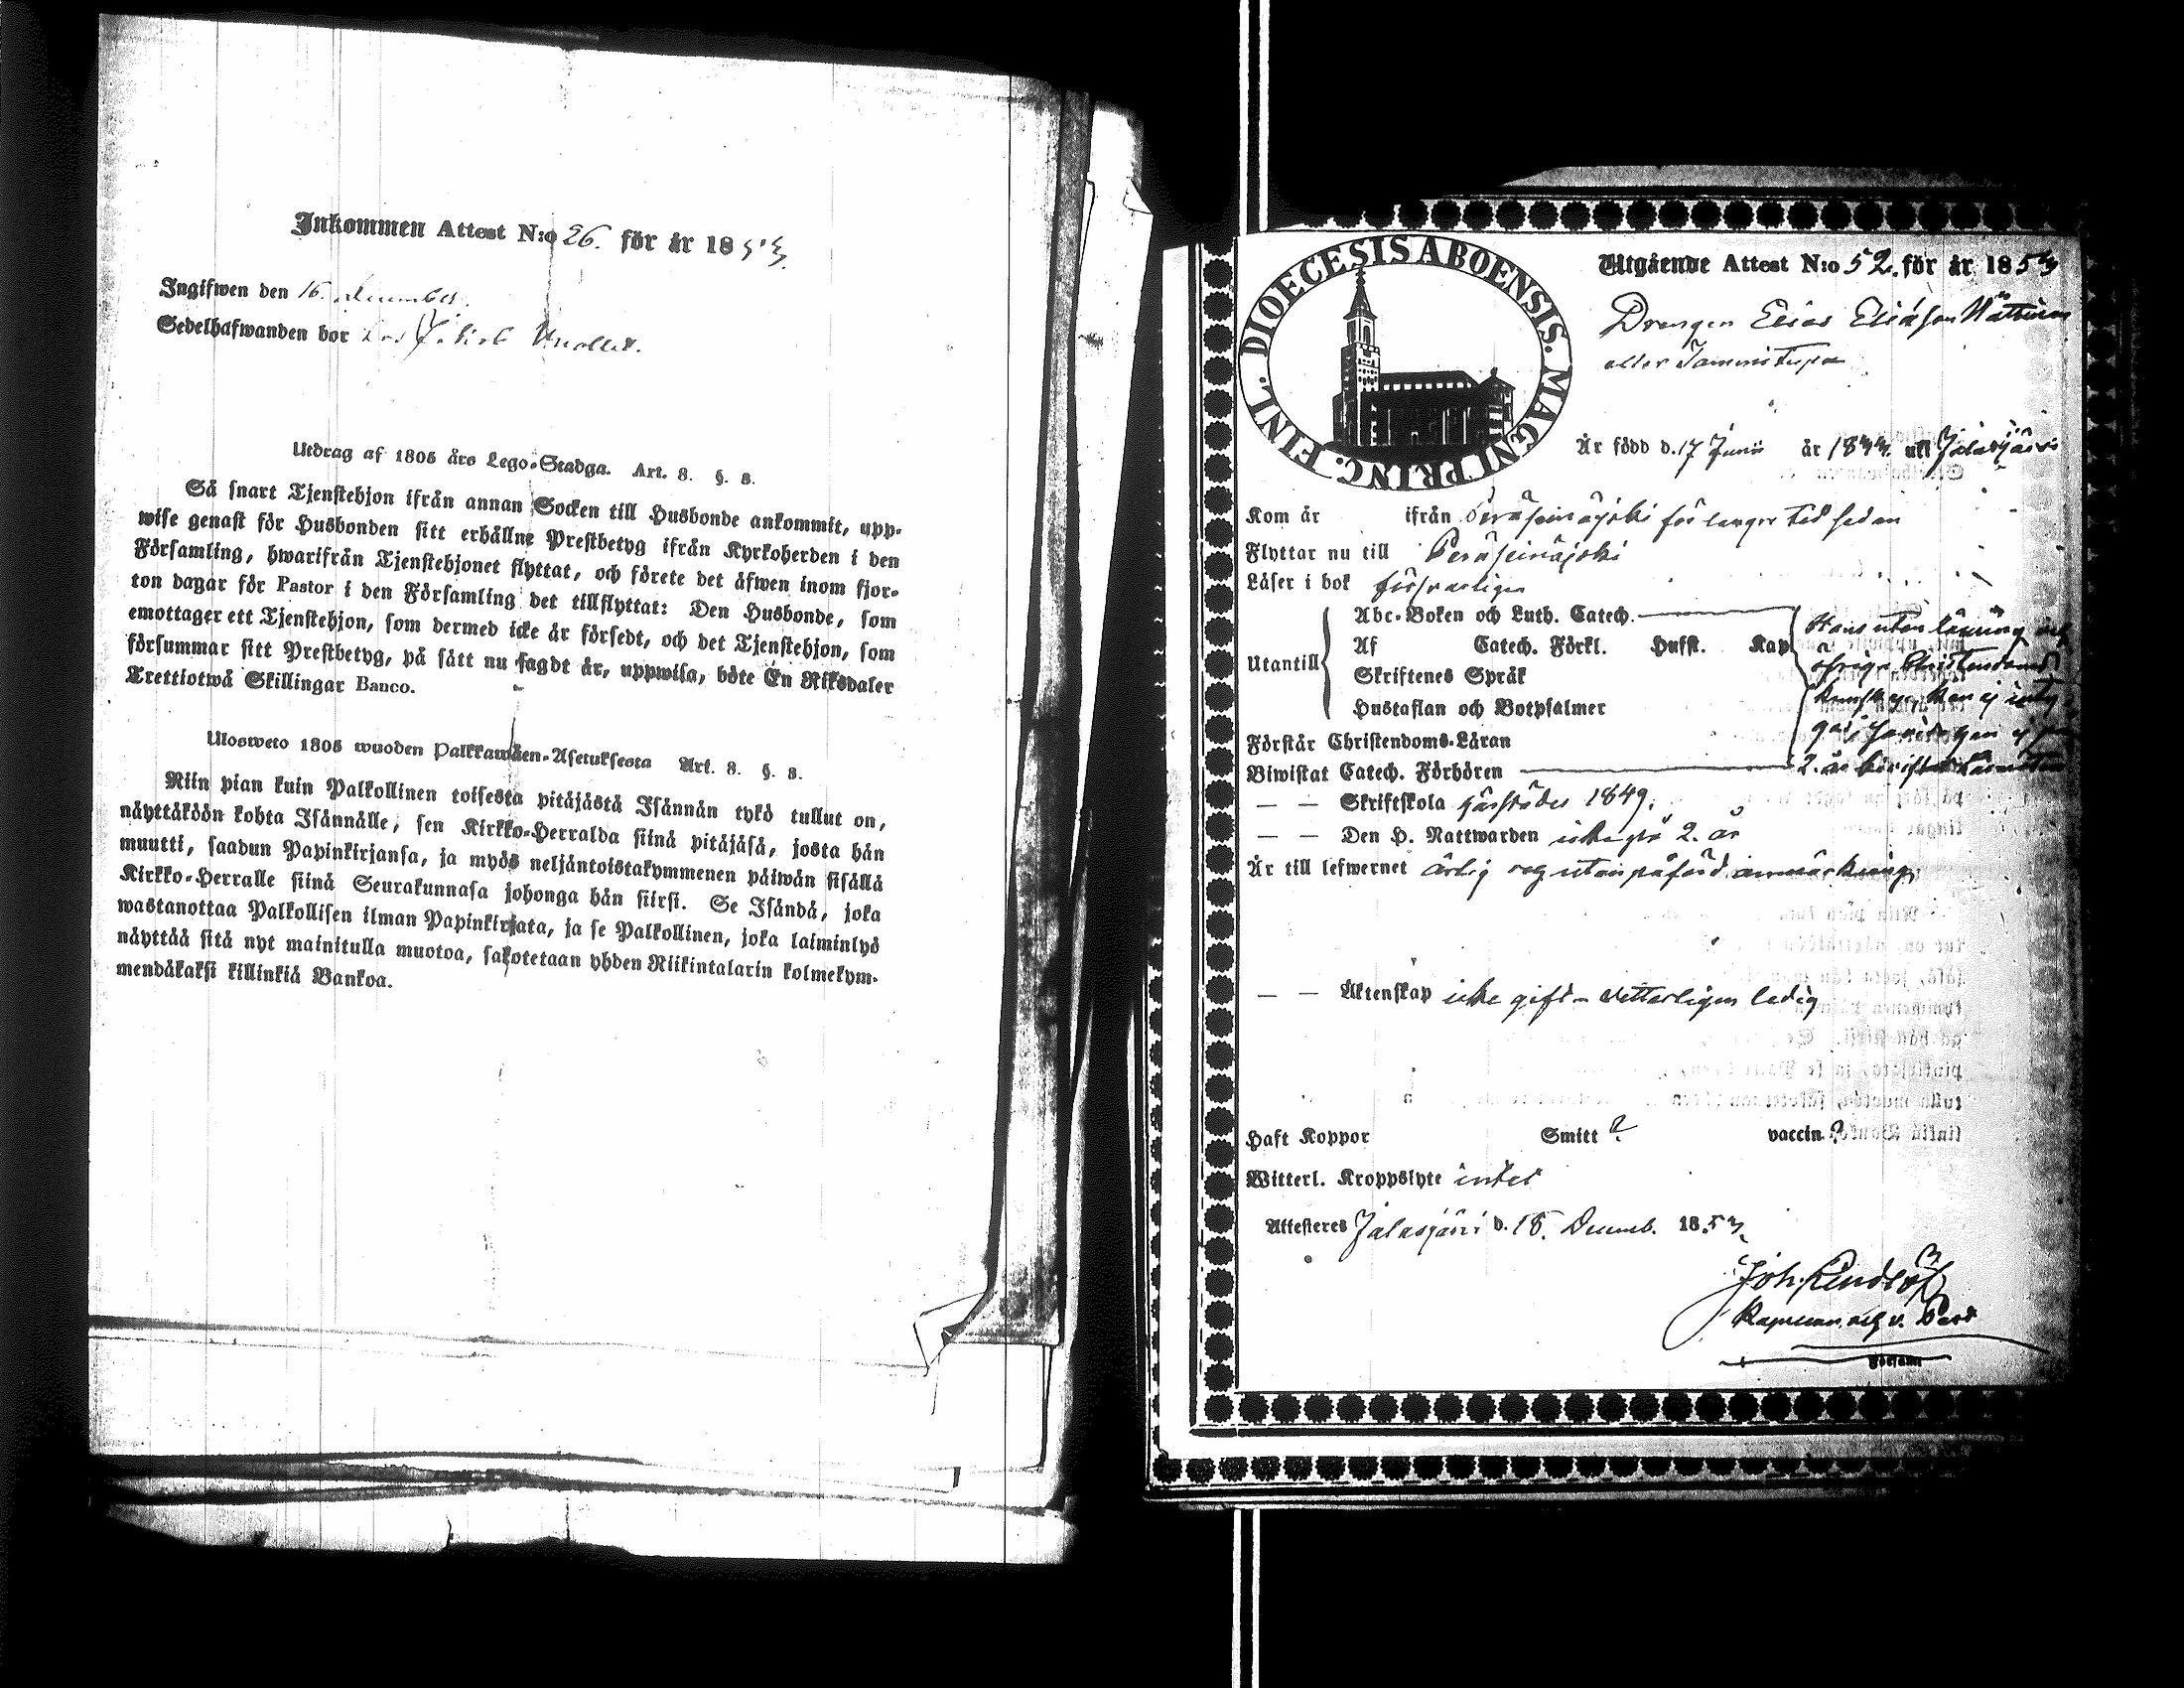 Inkommen Attest N:o 26. för år 1853.
Ingifwen den 16. December.
Sedelhafwanden bor
Utdrag af 1805 års Lego-Stadga. Art. 8. §. 8.
Så snart Tjenstehjon ifrån annan Socken till Husbonde ankommit, upp-
wise genast för Husbonden sitt erhållne Prestbetyg ifrån Kyrkoherden i den
Församling, hwarifrån Tjenstehjonet flyttat, och förete det äfwen inom fjor-
ton dagar för Pastor i den Församling det tillflyttat: Den Husbonde, som
emottager ett Tjenstehjon, som dermed icke är försedt, och det Tjenstehjon, som
försummar sitt Prestbetyg, på sätt nu sagdt är, uppwisa, böte En Riksdaler
Trettiotwå Skillingar Banco.
Ulosweto 1805 wuoden Palkkawäen-Asetuksesta Art. 8. §. 8.
Niin pian kuin Palkollinen toisesta pitäjästä Isännän tykö tullut on,
näyttäköön kohta Isännälle, sen Kirkko-Herralda siinä pitäjäsä, josta hän
muutti, saadun Papinkirjansa, ja myös neljäntoistakymmenen päiwän sisällä
Kirkko-Herralle siinä Seurakunnasa johonga hän siirsi. Se Isändä, joka
wastanottaa Palkollisen ilman Papinkirjata, ja se Palkollinen, joka laiminlyö
näyttää sitä nyt mainitulla muotoa, sakotetaan yhden Riikintalarin kolmekym-
mendäkaksi killinkiä Bankoa.
DIOECESIS ABOENSIS. MAGNI PRINC. FINL.
Utgående Attest N:o 52. för år 1853
Drengen Elias Eliasson
eller Tammistupa
Är född d. 17 Junii år 1833 uti Jalasjärvi
Kom år ifrån Peräseinäjoki för längre tid sedan
Flyttar nu till Peräseinäjoki
Läser i bok försvarligen
Abc-Boken och Luth. Catech.
Utantill Af Catech. Förkl. Hufst. Kap
Skriftenes Språk
Hustaflan och Botpsalmer
Hans utanläsning och
öfriga Christendoms
kunskap kan ej
2. år
Förstår Christendoms-Läran
Biwistat Catech. Förhören
— — Skriftskola 1849.
— — Den H. Nattwarden icke på 2. år
Är till lefwernet ärlig och utan påförd anmärkning
— — Äktenskap icke gift - vetterligen ledig
Haft Koppor Smitt ? vaccin ?
Witterl. Kroppslyte intet
Attesteres Jalasjärvi d. 15. Decemb. 1853.
Joh. Lindlöf
Kapellan och v. Past
Församl